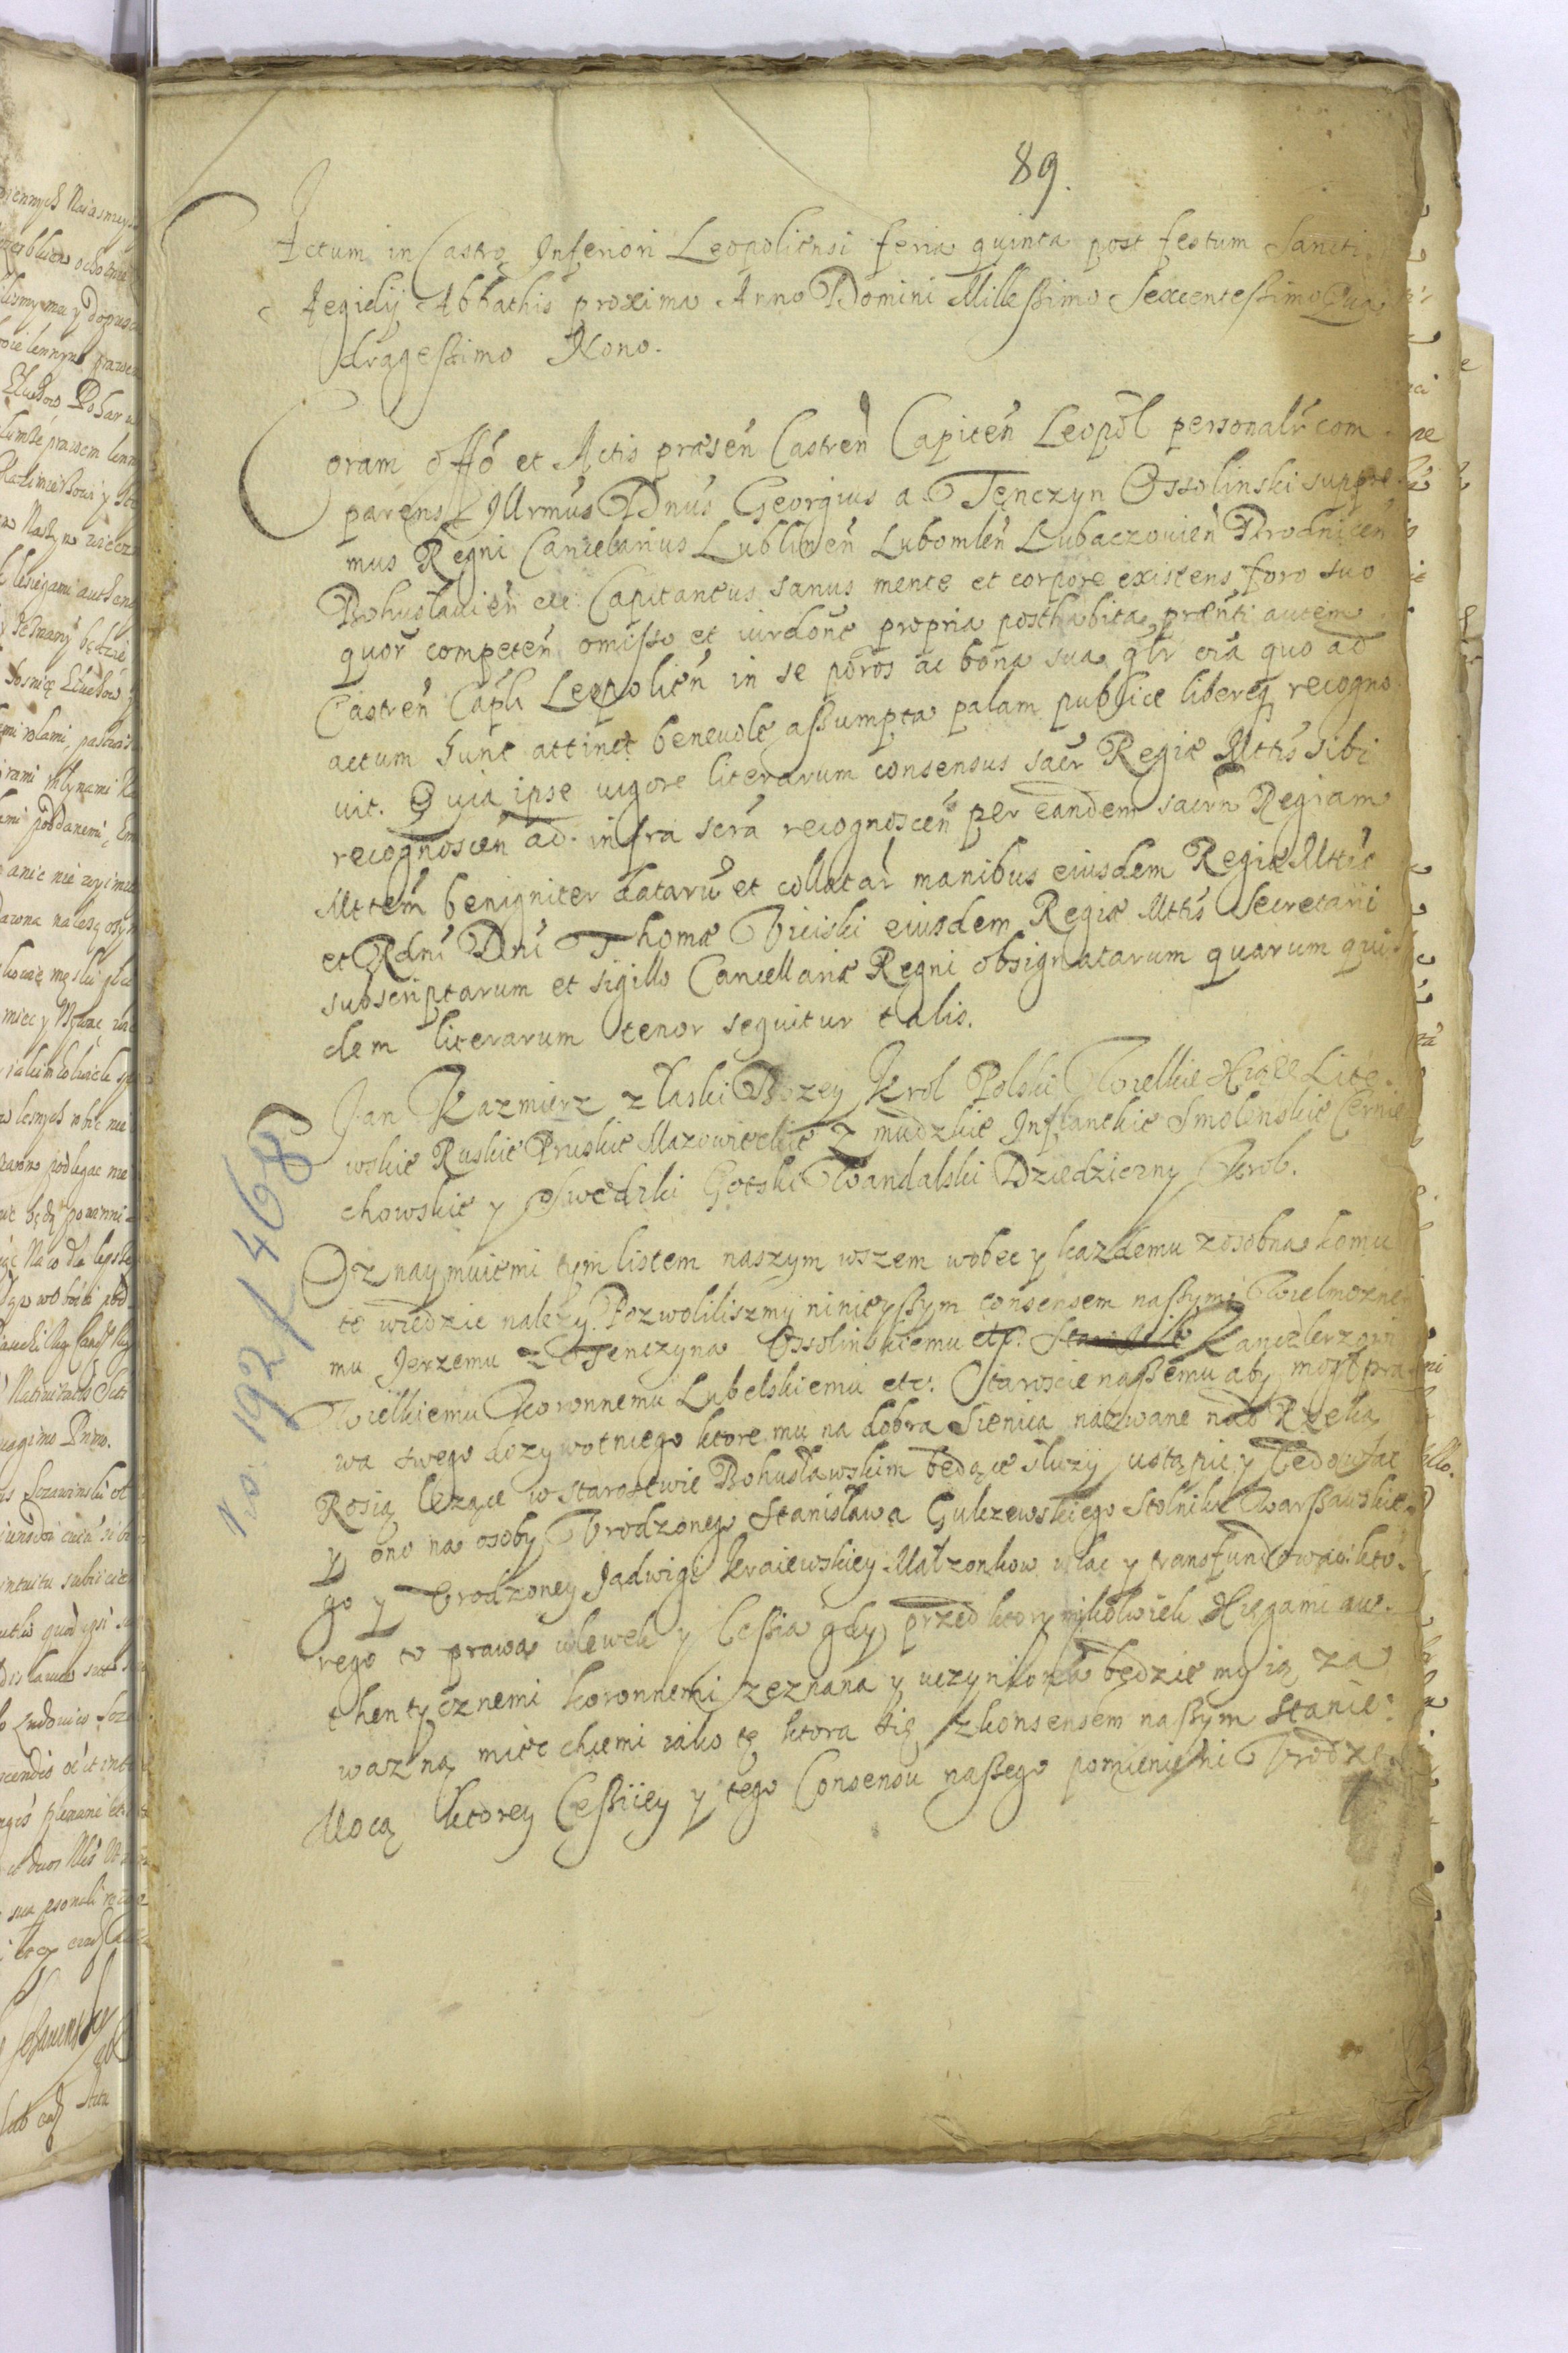 89.
Actum in Castro Inferiori Leopoliensi feria quinta post festum Sancti
Aegidij Abbathis proxima Anno Domini Millessimo Sexcentessimo Qua
dragessimo Nono.
Coram offo et Actis præsen Castren Capiten Leopol personalr com
parens Illrmus Dnus Georgius a Tęnczyn Ossolinski supre
mus Regni Cancelarius Lublinen Lubomlen Lubaczovien Brodnicen
Bohuslavien etc Capitaneus sanus mente et corpore existens foro suo
quor competen omisso et iurdone propria posthabita prænti autem
Castren Capli Leopolien in se poros ac bona sua glr oia quo ad
actum hunc attinet benevole assumpta palam publice libereq recogno
vit. Quia ipse vigore literarum consensus sacr Regiæ Mttis sibi
recognoscen ad infra scra recognoscen per eandem sacrn Regiam
Mttem benigniter dataru et collatar manibus eiusdem Regiæ Mttis
et Rdni Dni Thomæ Vieiski eiusdem Regiæ Mttis Secretarii
subscriptarum et sigillo Cancellariæ Regni obsignatarum quarum qui
dem literarum tenor sequitur talis.
Jan Kazmierz z łaski Bozey Krol Polski Wielkie Hiąze Lite
wskie Ruskie Pruskie Mazowieckie Zmudzkie Inflanckie Smolenskie Cernie
chowskie y Swedzki Gotski Wandalski Dziedziczny Krol.
Oznaymuiemi tym listem naszym wszem wobec y kazdemu zosobna komu
to wiedzie nalezy. Pozwoliliszmy ninieyssym consensem nassymi Wielmozne
mu Jerzemu z Tenczyna Ossolinskiemu etc. Kanczlerzowi
Wielkiemu Koronnemu Lubelskiemu etc. Staroscie nassemu aby mogl pra
wa swego dozywotniego ktore mu na dobra Sienica nazwane nad Rzeką
Rosią lezące w starostwie Bohusławskim będące słuzy ustąpic y
y ono na osoby Vrodzonego Stanisława Gulczewskiego Stolnika Warssawskie
go y Vrodzoney Jadwigi Kraiewskiey Małzonkow wlac y transfundowac kto
rego to prawa wlewek y Cessia gdy przed ktorymikolwiek Hięgami au
thentycznemi koronnemi zeznana y uczyniona będzie my ią za
wazną miec chcemi iako tę ktora się z konsensem nassym stanie
Mocą ktorey Cessiiey y tego Consensu nassego pomienieni Vrodze
No. 192/468